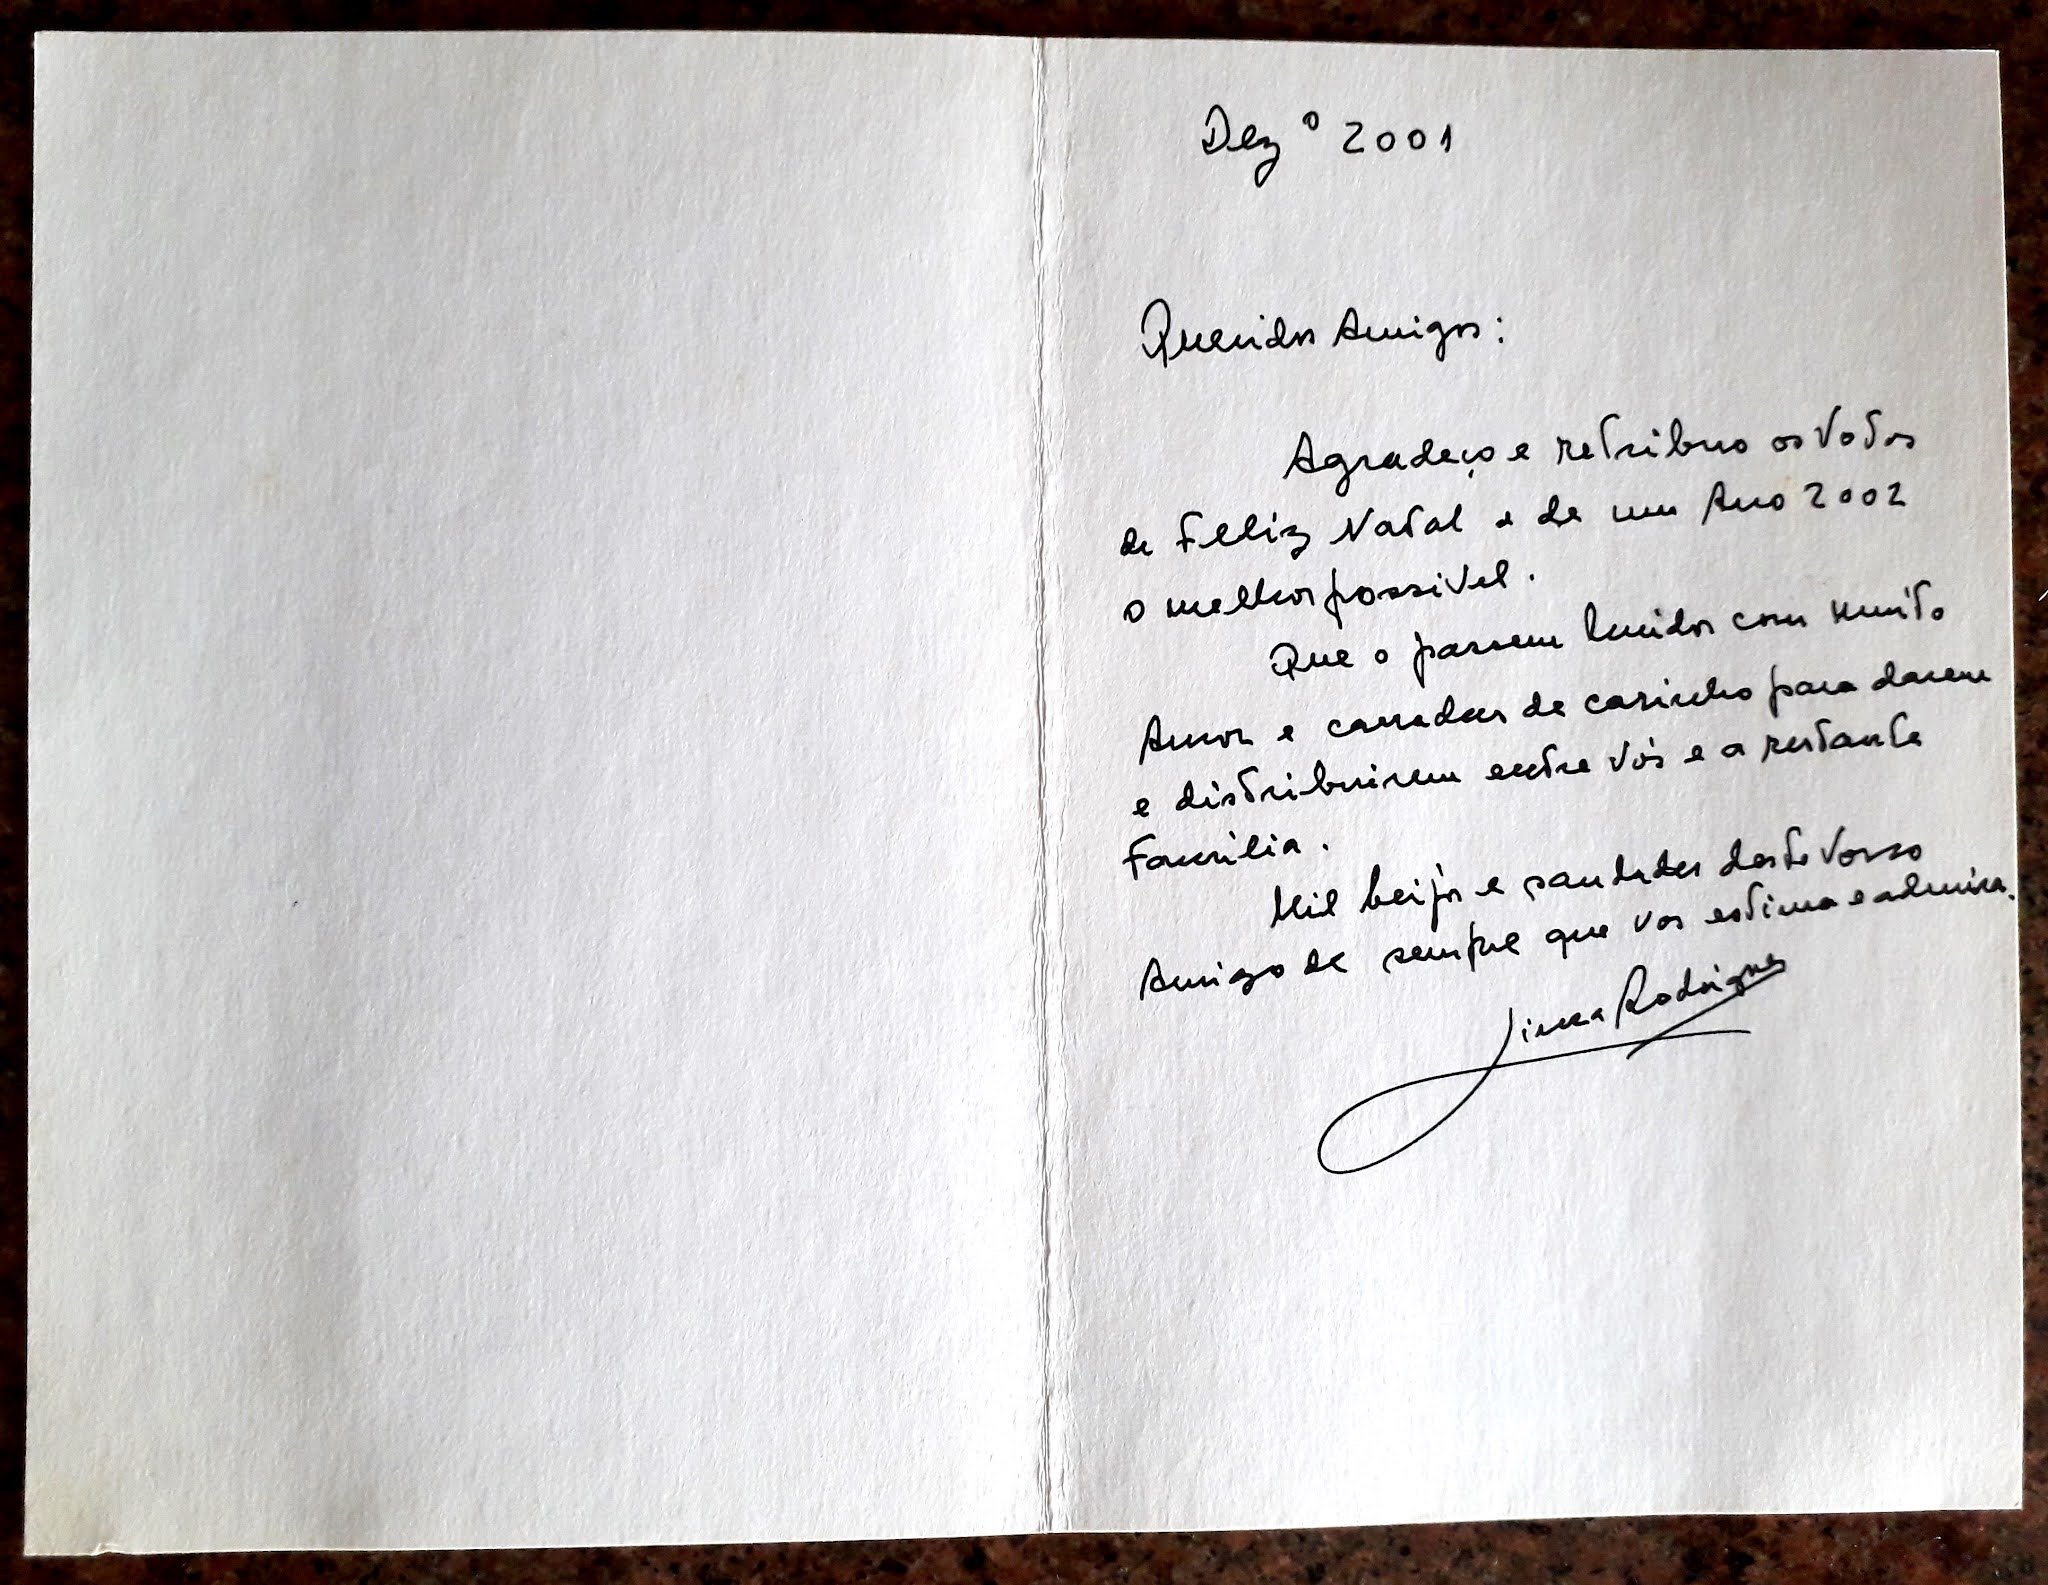 Dezº 2001
Queridos Amigos:
Agradeço e retribuo os Votos
de Feliz Natal e de um Ano 2002
o melhor possivel.
Que o passem Unidos com Muito
Amor e carradas de carinho para darem
e distribuirem entre Vós e a restante
Família.
Mil beijos e saudades deste Vosso
Amigo de sempre que vos estima e admira.
Rodrigues